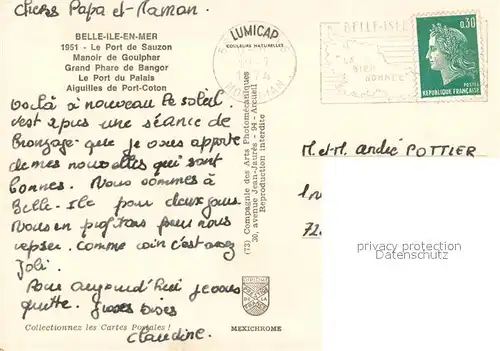 Chers Papa et Maman.
BELLE-ILE-EN-MER
1951 - Le Port de Sauzon
Manoir de Goulphar
Grand Phare de Bangor
Le Port du Palais
Aiguilles de Port-Coton
Voilà à nouveau le soleil.
c'est après une séance de
bronzage que je vous apporte
de mes nouvelles qui sont
bonnes. Nous sommes à
Belle-Ile pour deux jours.
Nous en profitons pour nous
reposer. Comme coin c'est assez
joli.
Pour aujourd'hui je vous
quitte. Grosses bises
Claudine.
Collectionnez les Cartes Postales !
LUMICAP
COULEURS NATURELLES
(73) Compagnie des Arts Photomécaniques
30, avenue Jean-Jaurès - 94 - Arcueil
Reproduction interdite
MEXICHROME
MORBIHAN
BELLE-ISLE
LA
BIEN
NOMMÉE
0,30
POSTES
REPUBLIQUE FRANÇAISE
M. et M. andré POTTIER
72
privacy protection